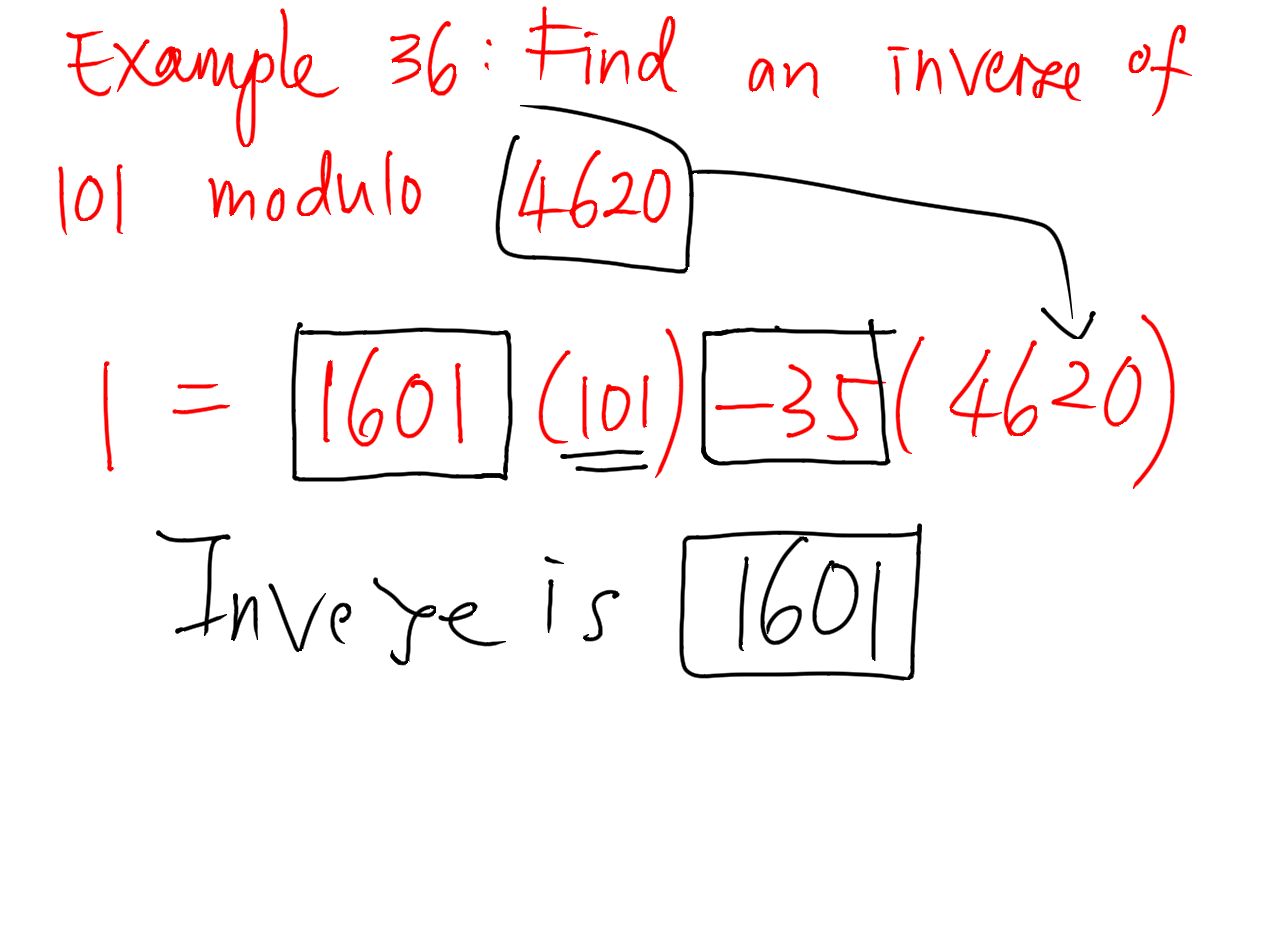 Example 36: Find an inverse of
101 modulo 4620
1 = 1601 (101) -35 (4620)
Inverse is 1601